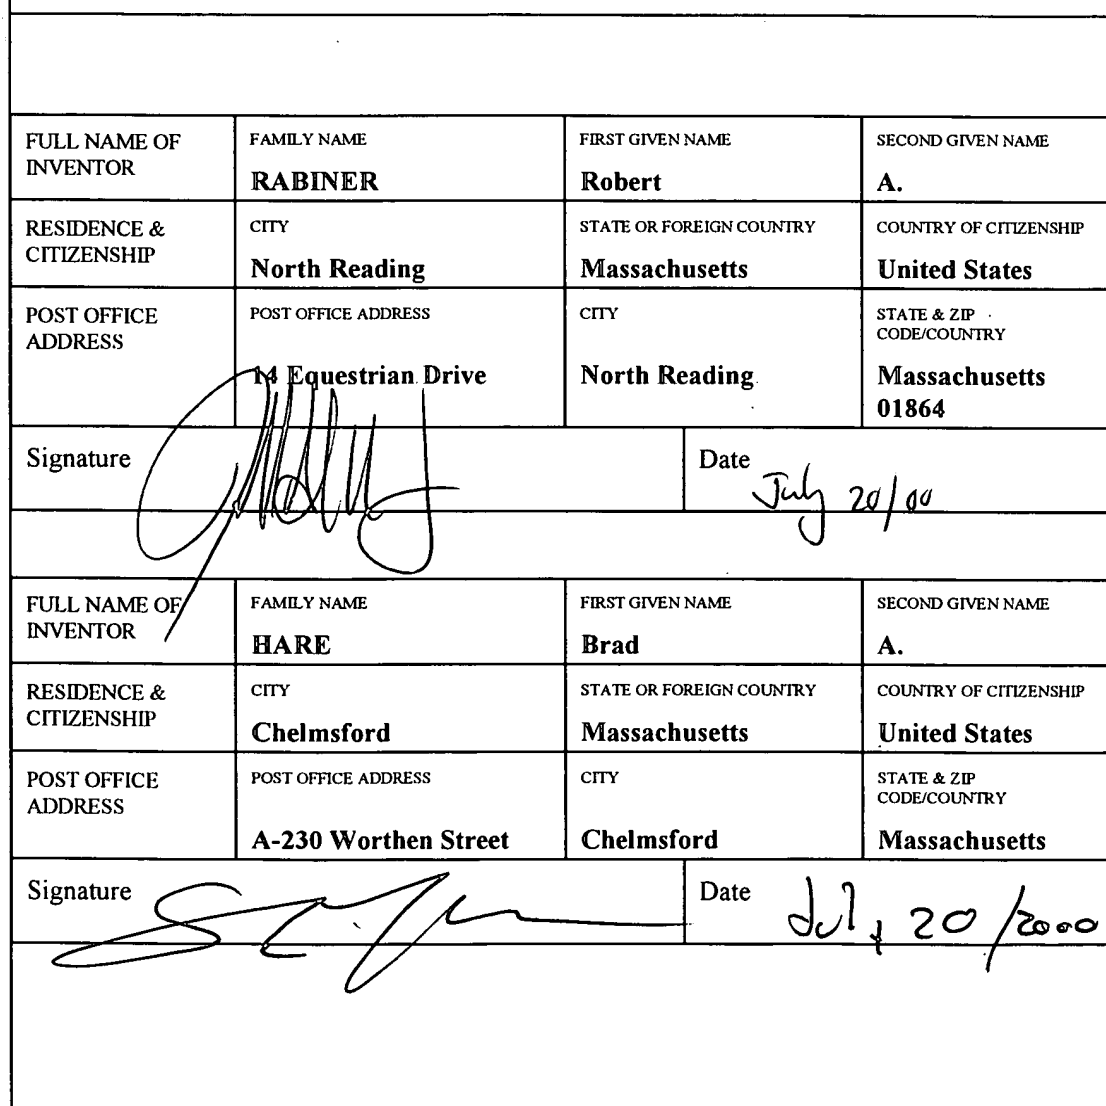 FULL NAME OF INVENTOR
FAMILY NAME
RABINER
FIRST GIVEN NAME
Robert
SECOND GIVEN NAME
A.
RESIDENCE & CITIZENSHIP
CITY
North Reading
STATE OR FOREIGN COUNTRY
Massachusetts
COUNTRY OF CITIZENSHIP
United States
POST OFFICE ADDRESS
POST OFFICE ADDRESS
14 Equestrian Drive
CITY
North Reading
STATE & ZIP CODE/COUNTRY
Massachusetts
01864
Signature
Date
July 20/00
FULL NAME OF INVENTOR
FAMILY NAME
HARE
FIRST GIVEN NAME
Brad
SECOND GIVEN NAME
A.
RESIDENCE & CITIZENSHIP
CITY
Chelmsford
STATE OR FOREIGN COUNTRY
Massachusetts
COUNTRY OF CITIZENSHIP
United States
POST OFFICE ADDRESS
POST OFFICE ADDRESS
A-230 Worthen Street
CITY
Chelmsford
STATE & ZIP CODE/COUNTRY
Massachusetts
Signature
Date
July 20/2000